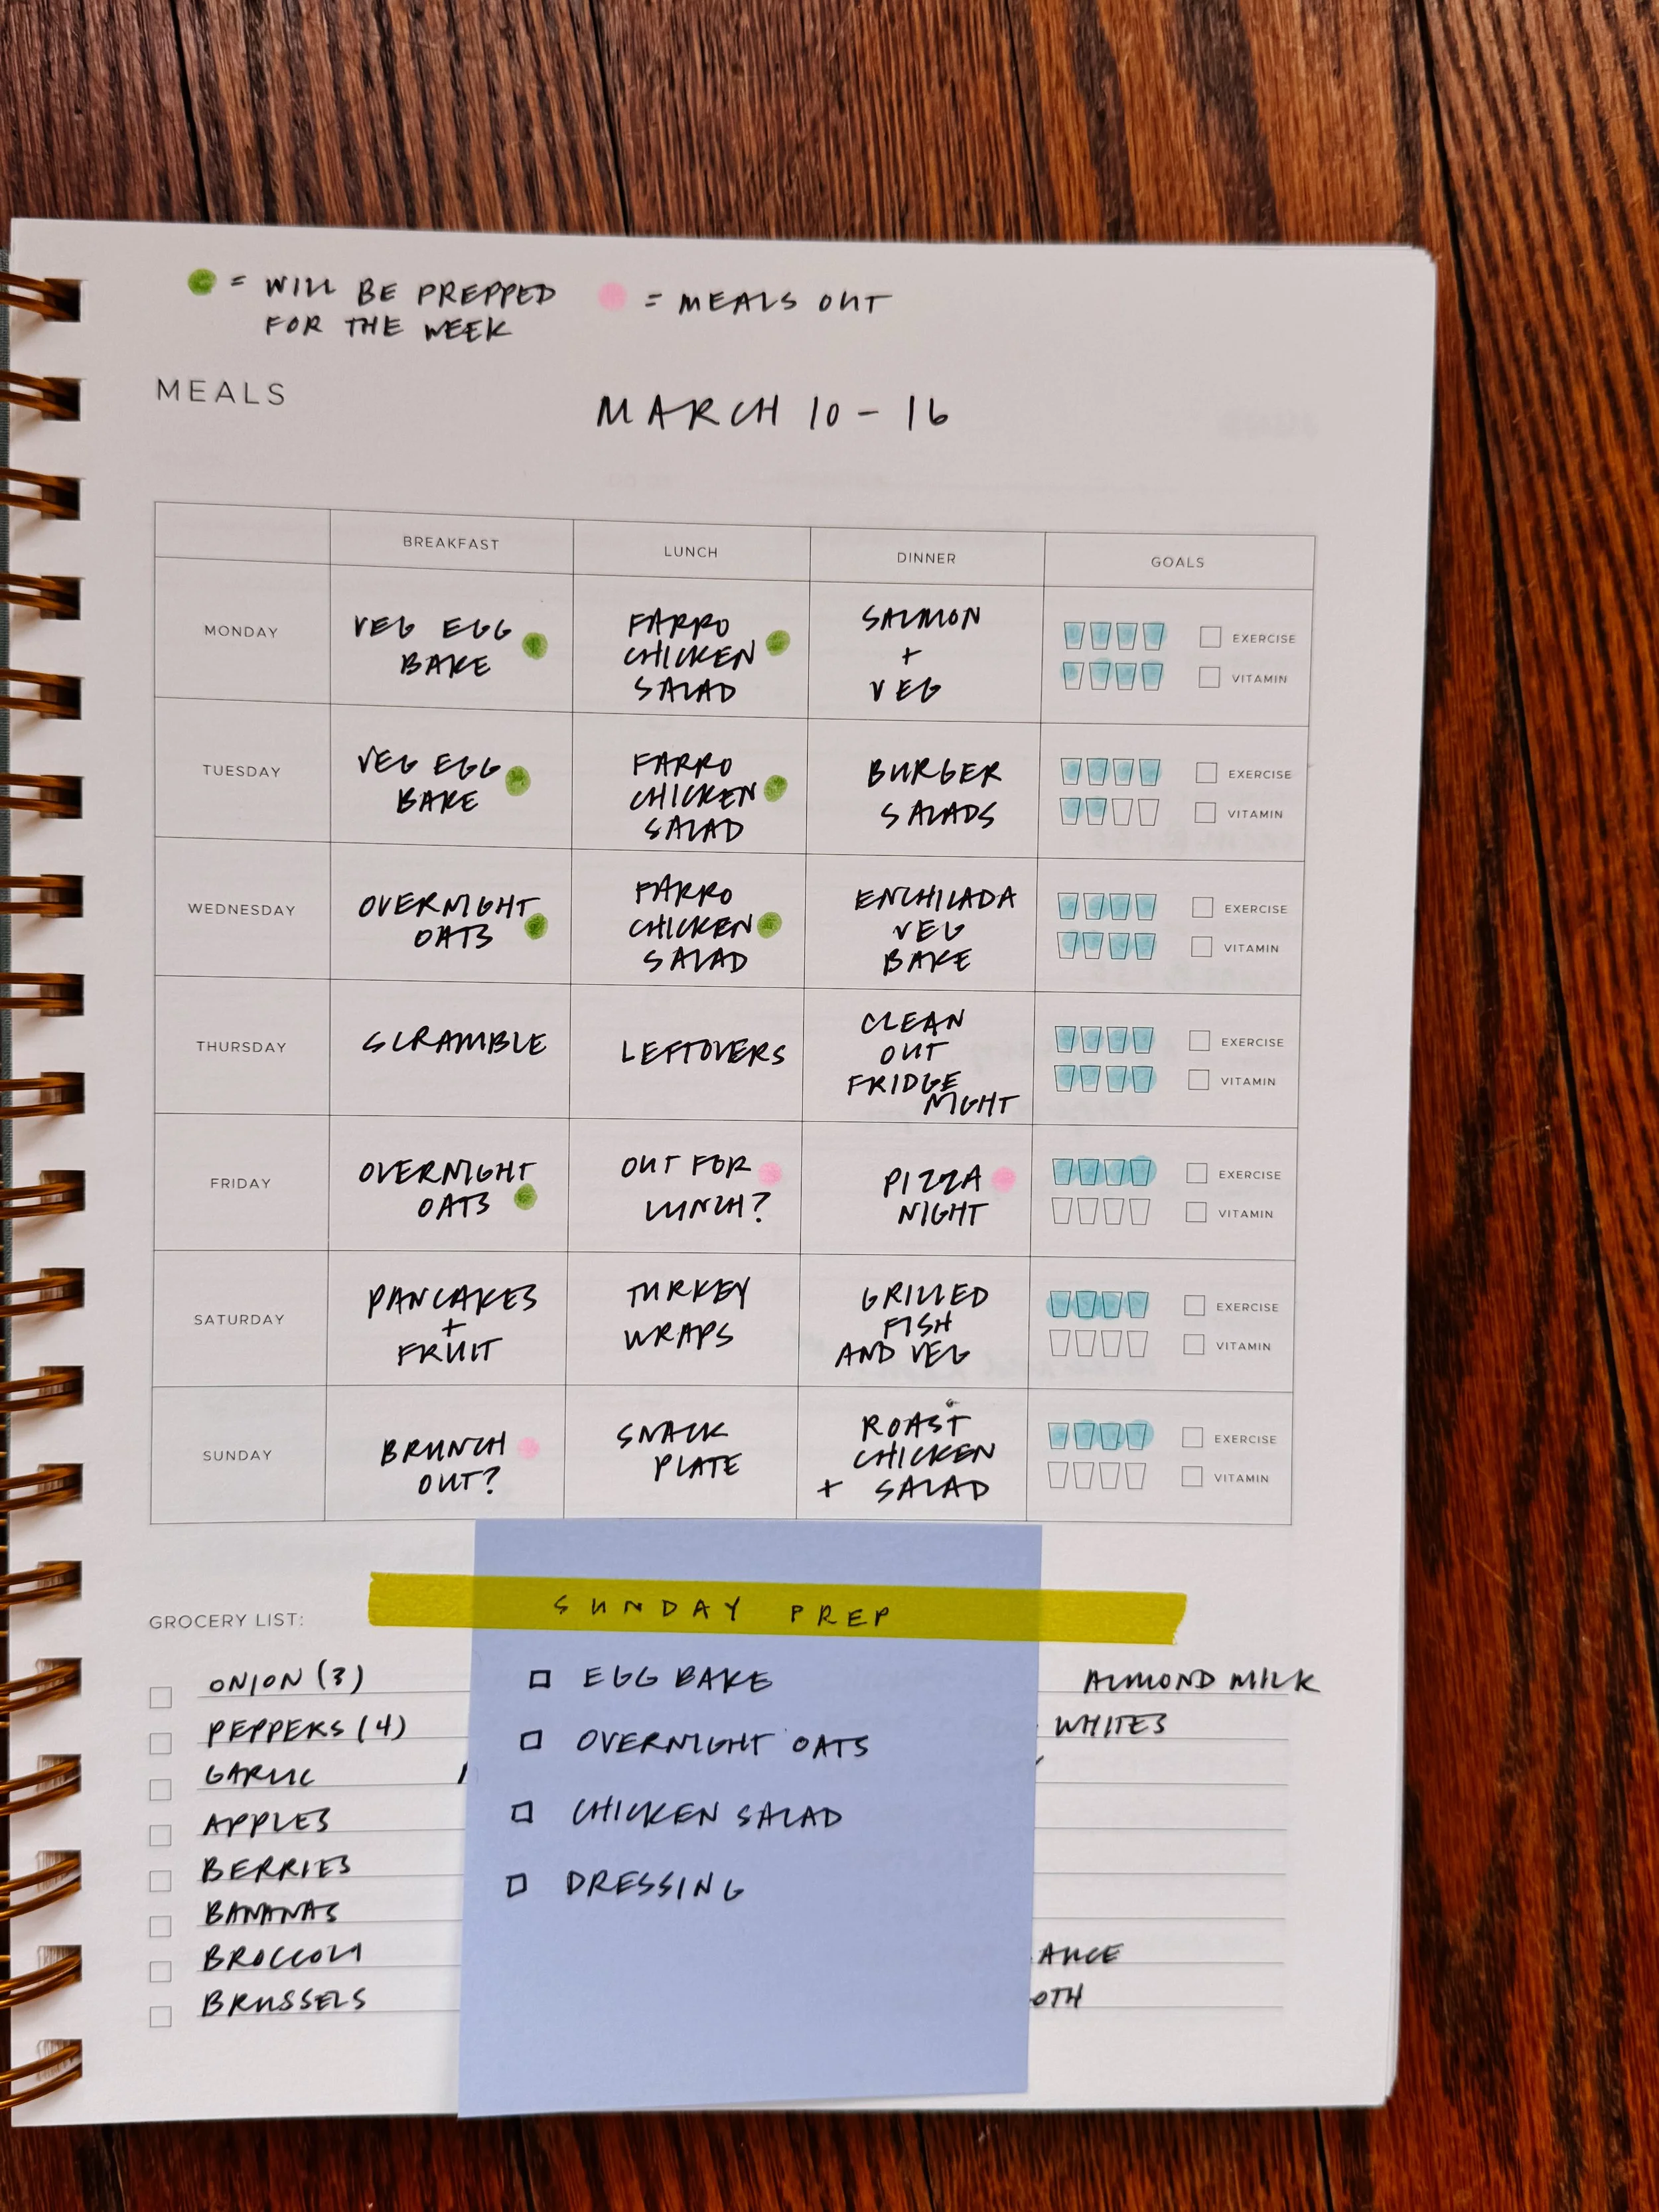 = WILL BE PREPPED
FOR THE WEEK
= MEALS OUT
MEALS
MARCH 10 - 16
BREAKFAST
LUNCH
DINNER
GOALS
MONDAY
VEG EGG
BAKE
FARRO
CHICKEN
SALAD
SALMON
+
VEG
EXERCISE
VITAMIN
TUESDAY
VEG EGG
BAKE
FARRO
CHICKEN
SALAD
BURGER
SALADS
EXERCISE
VITAMIN
WEDNESDAY
OVERNIGHT
OATS
FARRO
CHICKEN
SALAD
ENCHILADA
VEG
BAKE
EXERCISE
VITAMIN
THURSDAY
SCRAMBLE
LEFTOVERS
CLEAN
OUT
FRIDGE
NIGHT
EXERCISE
VITAMIN
FRIDAY
OVERNIGHT
OATS
OUT FOR
LUNCH?
PIZZA
NIGHT
EXERCISE
VITAMIN
SATURDAY
PANCAKES
+
FRUIT
TURKEY
WRAPS
GRILLED
FISH
AND VEG
EXERCISE
VITAMIN
SUNDAY
BRUNCH
OUT?
SNACK
PLATE
ROAST
CHICKEN
+ SALAD
EXERCISE
VITAMIN
GROCERY LIST:
ONION (3)
PEPPERS (4)
GARLIC
APPLES
BERRIES
BANANAS
BROCCOLI
BRUSSELS
SUNDAY PREP
EGG BAKE
OVERNIGHT OATS
CHICKEN SALAD
DRESSING
ALMOND MILK
WHITES